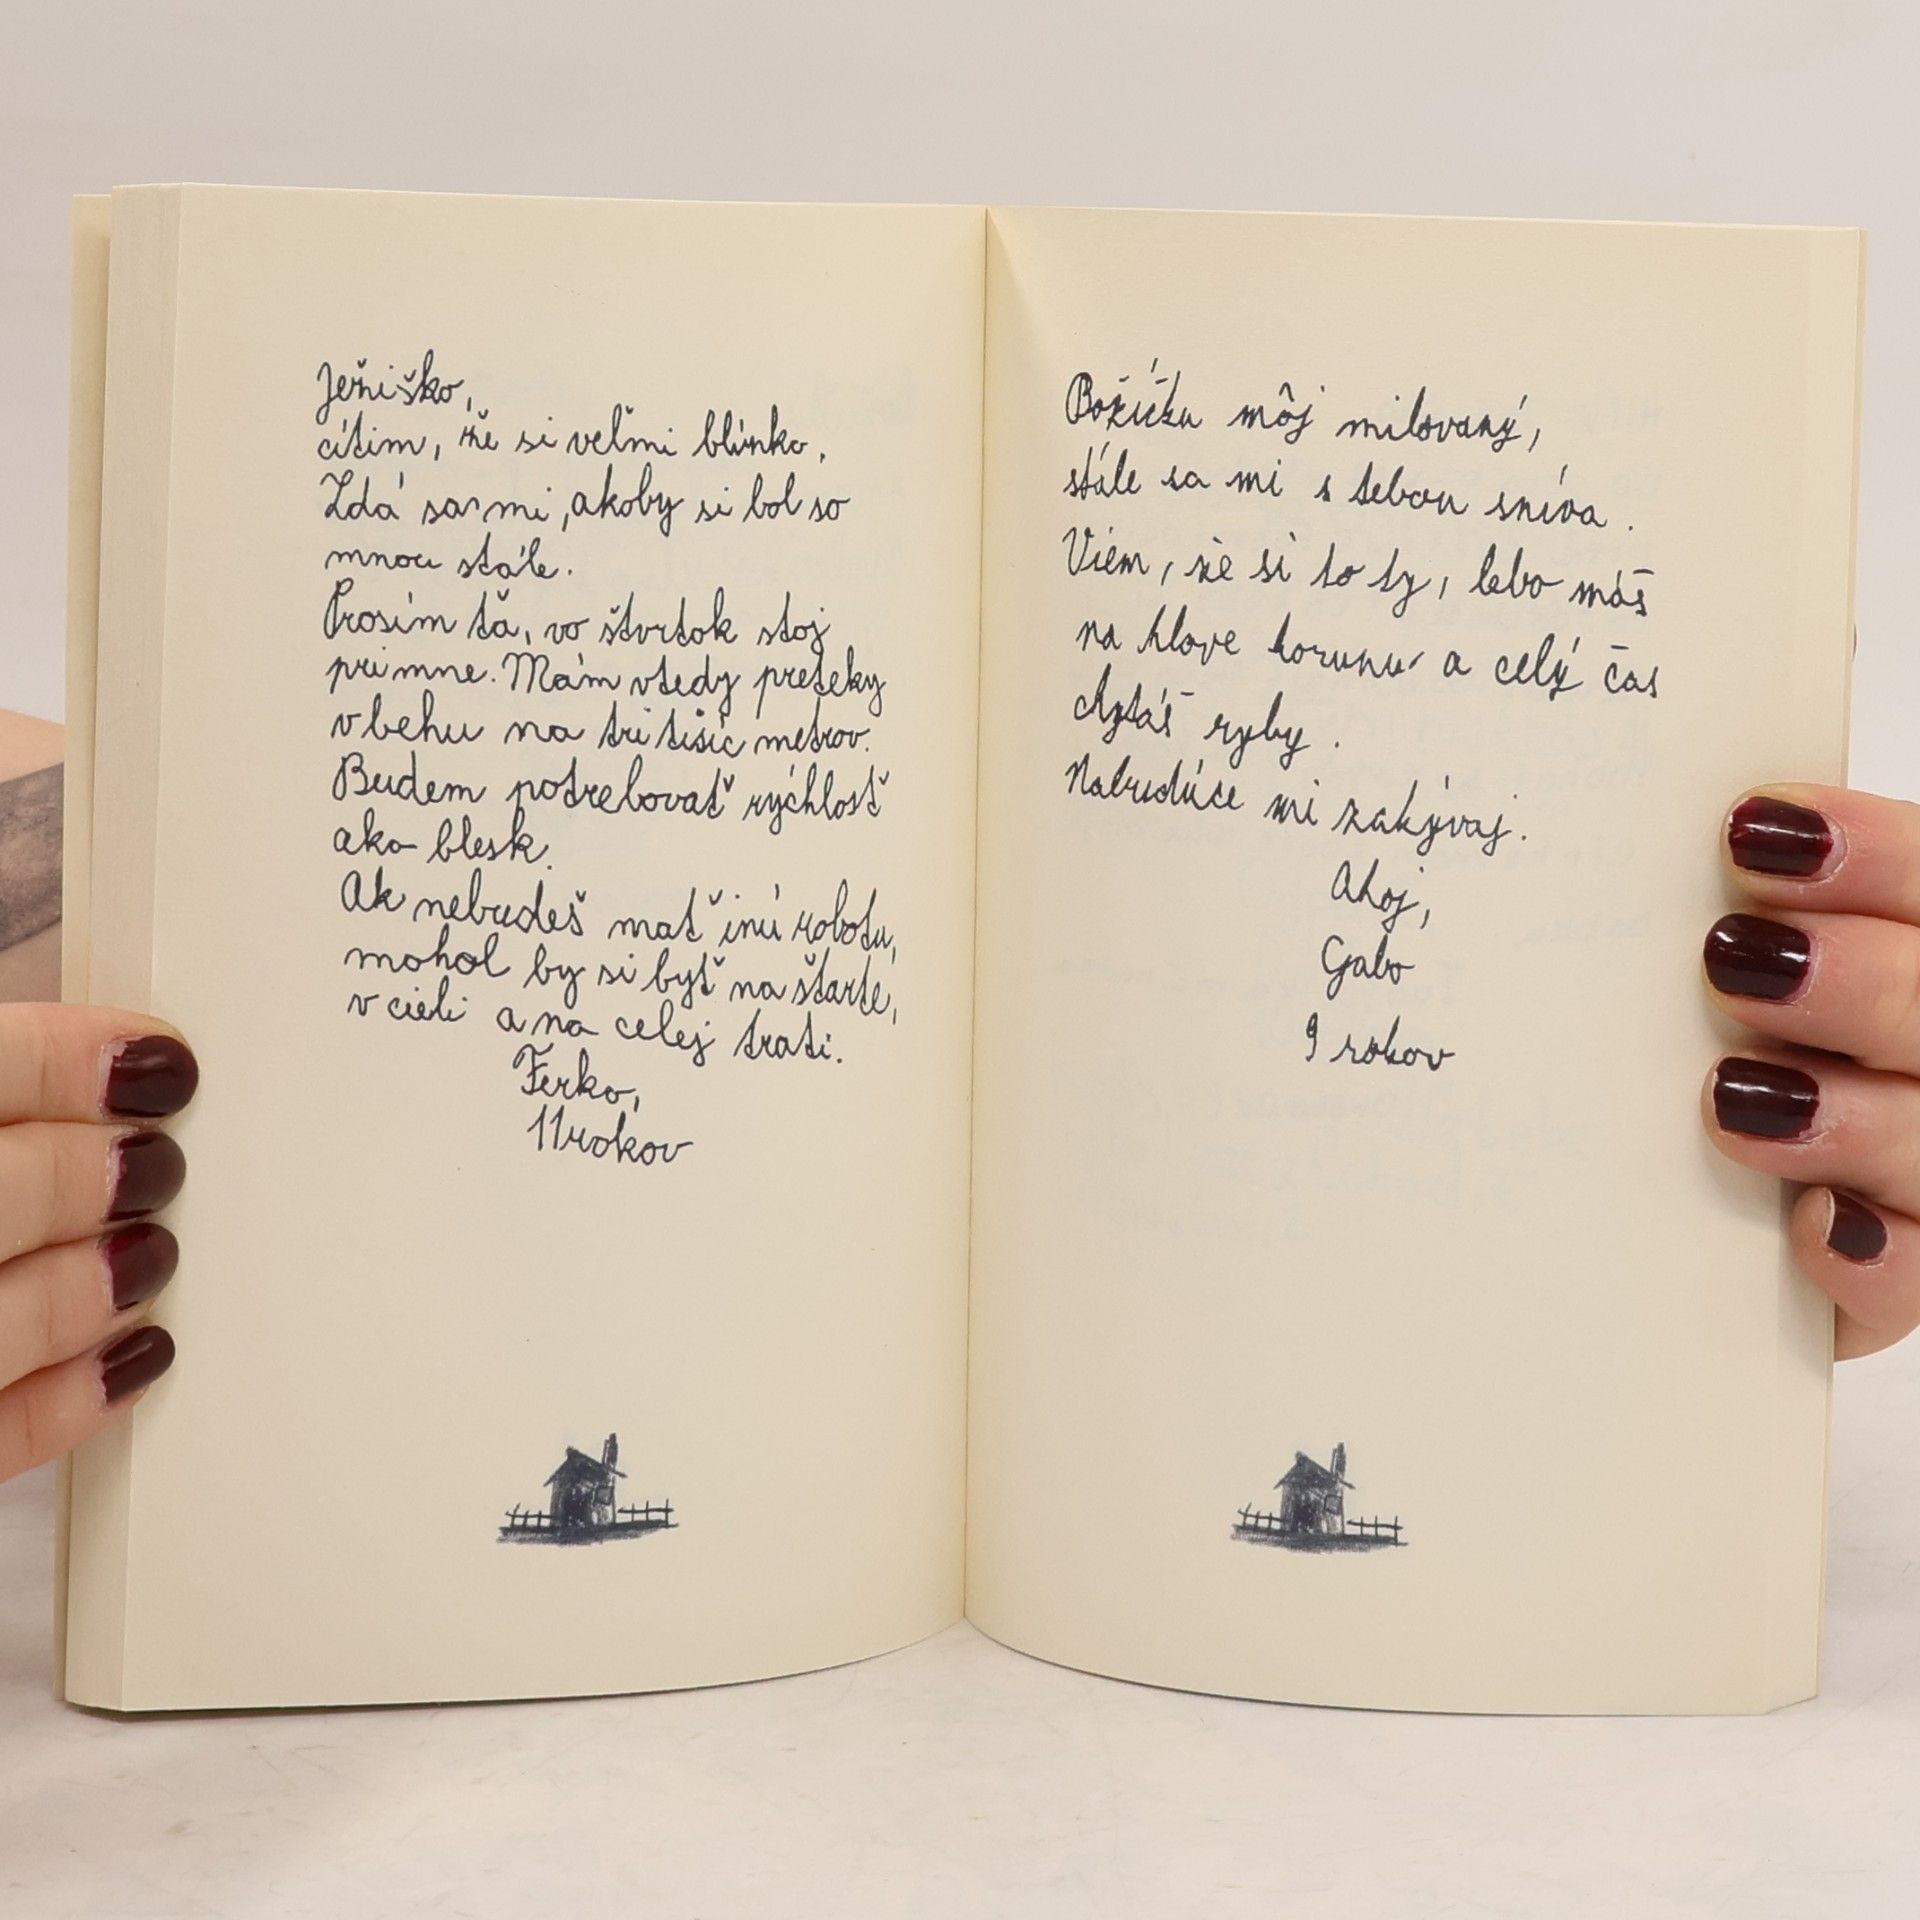 Ježiško,
cítim, že si veľmi blízko.
Zdá sa mi, akoby si bol so
mnou stále.
Prosím ťa, vo štvrtok stoj
pri mne. Mám vtedy preteky
v behu na tri tisíc metrov.
Budem potrebovať rýchlosť
ako blesk.
Ak nebudeš mať inú robotu,
mohol by si byť na štarte,
v cieli a na celej trati.
Ferko,
11 rokov
Božíčku môj milovaný,
stále sa mi s tebou sníva.
Viem, že si to ty, lebo máš
na hlave korunu a celý čas
chytáš ryby.
Nabudúce mi zakývaj.
Ahoj,
Gabo
9 rokov